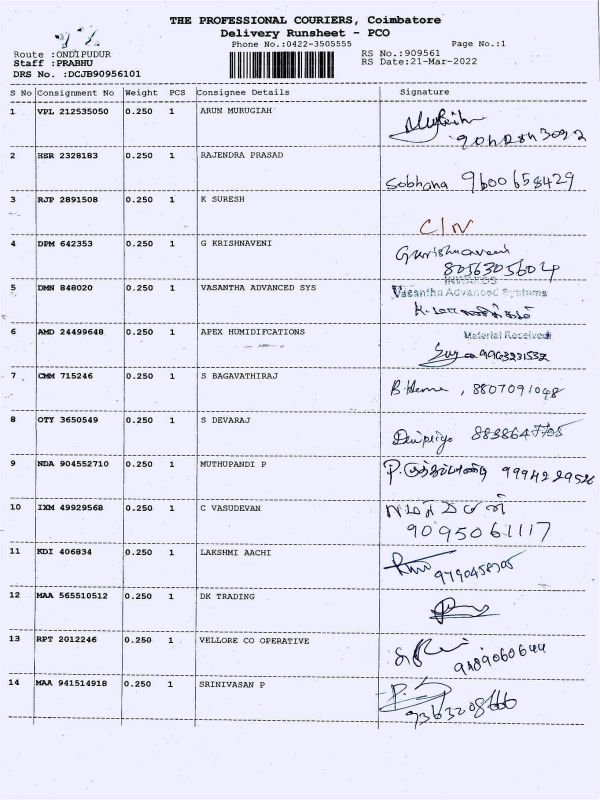 THE PROFESSIONAL COURIERS, Coimbatore
Delivery Runsheet - PCO
Phone No.:0422-3505555 Page No.:1
Route :ONDIPUDUR RS No.:909561
Staff :PRABHU RS Date:21-Mar-2022
DRS No. :DCJB90956101
S No Consignment No Weight PCS Consignee Details Signature
1 VPL 212535050 0.250 1 ARUN MURUGIAH
2 HSR 2328183 0.250 1 RAJENDRA PRASAD
Sobhana 9600658429
3 RJP 2891508 0.250 1 K SURESH
4 DPM 642353 0.250 1 G KRISHNAVENI
8056305604
5 DMN 848020 0.250 1 VASANTHA ADVANCED SYS
Vasantha Advanced Systems
6 AMD 24499648 0.250 1 APEX HUMIDIFCATIONS
Material Received
7 CMM 715246 0.250 1 S BAGAVATHIRAJ
B.Hema, 8807091048
8 OTY 3650549 0.250 1 S DEVARAJ
9 NDA 904552710 0.250 1 MUTHUPANDI P
10 IXM 49929568 0.250 1 C VASUDEVAN
9095061117
11 KDI 406834 0.250 1 LAKSHMI AACHI
12 MAA 565510512 0.250 1 DK TRADING
13 RPT 2012246 0.250 1 VELLORE CO OPERATIVE
9489060644
14 MAA 941514918 0.250 1 SRINIVASAN P